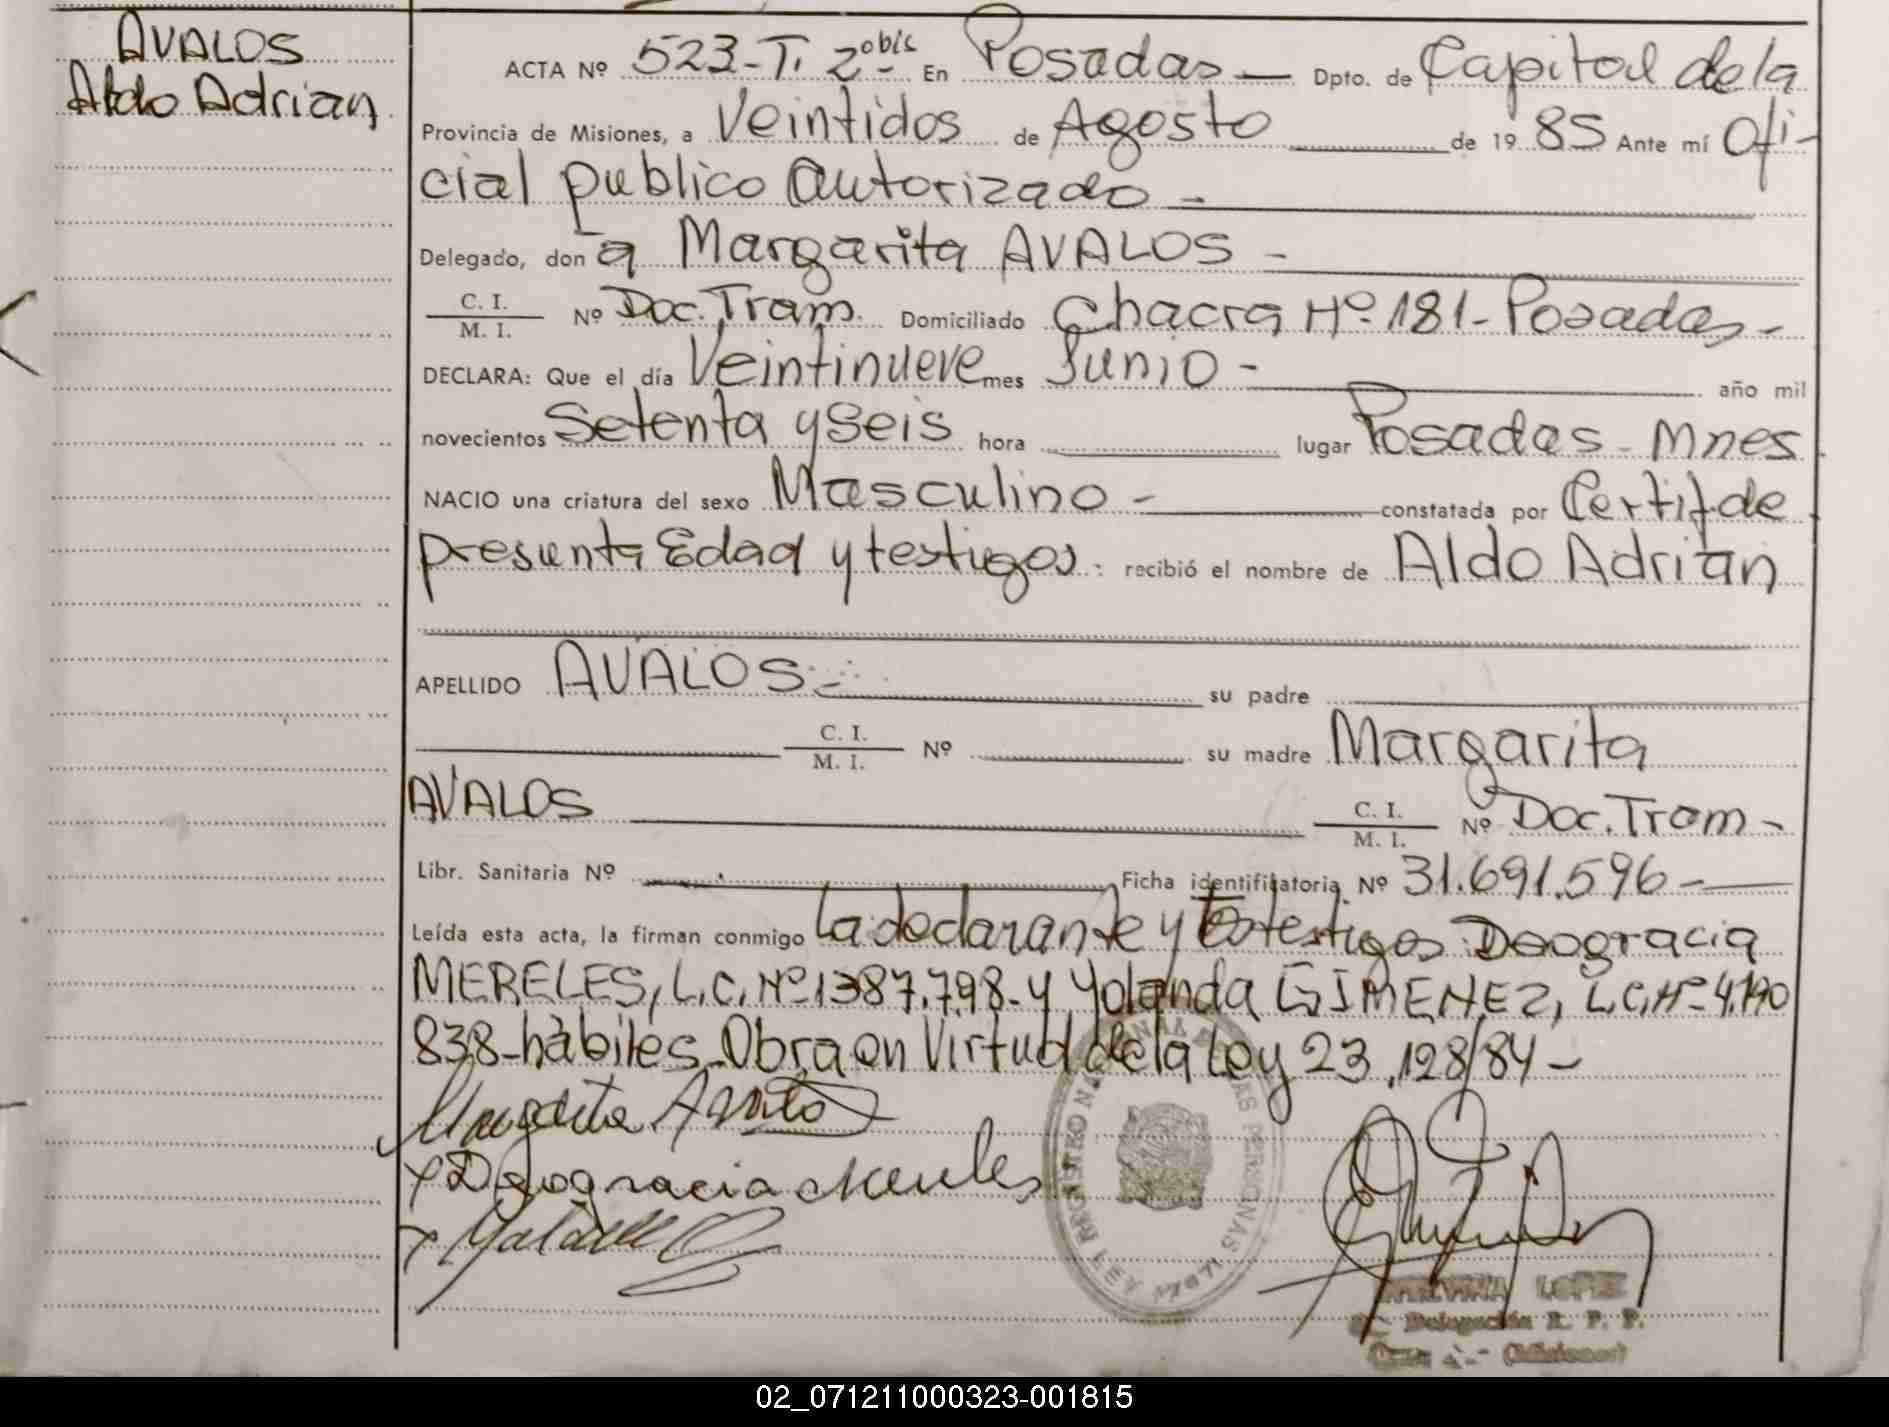 AVALOS
Aldo Adrian
ACTA Nº 523-T. 2º bis En Posadas — Dpto. de Capital de la
Provincia de Misiones, a Veintidos de Agosto de 1985 Ante mí Ofi-
cial publico autorizado -
Delegado, don a Margarita AVALOS -
C. I.
M. I. Nº Doc. Tram. Domiciliado Chacra Nº 181 - Posadas -
DECLARA: Que el día Veintinueve mes Junio - año mil
novecientos Setenta y Seis hora lugar Posadas - Mnes
NACIO una criatura del sexo Masculino - constatada por Certif de
presunta Edad y testigos : recibió el nombre de Aldo Adrian
APELLIDO AVALOS - su padre
C. I.
M. I. Nº su madre Margarita
AVALOS C. I.
M. I. Nº Doc. Tram -
Libr. Sanitaria Nº Ficha identificatoria Nº 31.691.596 -
Leída esta acta, la firman conmigo la declarante y testigos Deogracia
MERELES, L.C. Nº 1387.798 - y Yolanda GIMENEZ, L.C. Nº 4.190
838 - hábiles - Obra en Virtud de la Ley 23.128/84 -
Margarita
x Deogracia Mereles
x
LOPEZ
Delegación R. P. P.
(Misiones)
02_071211000323-001815